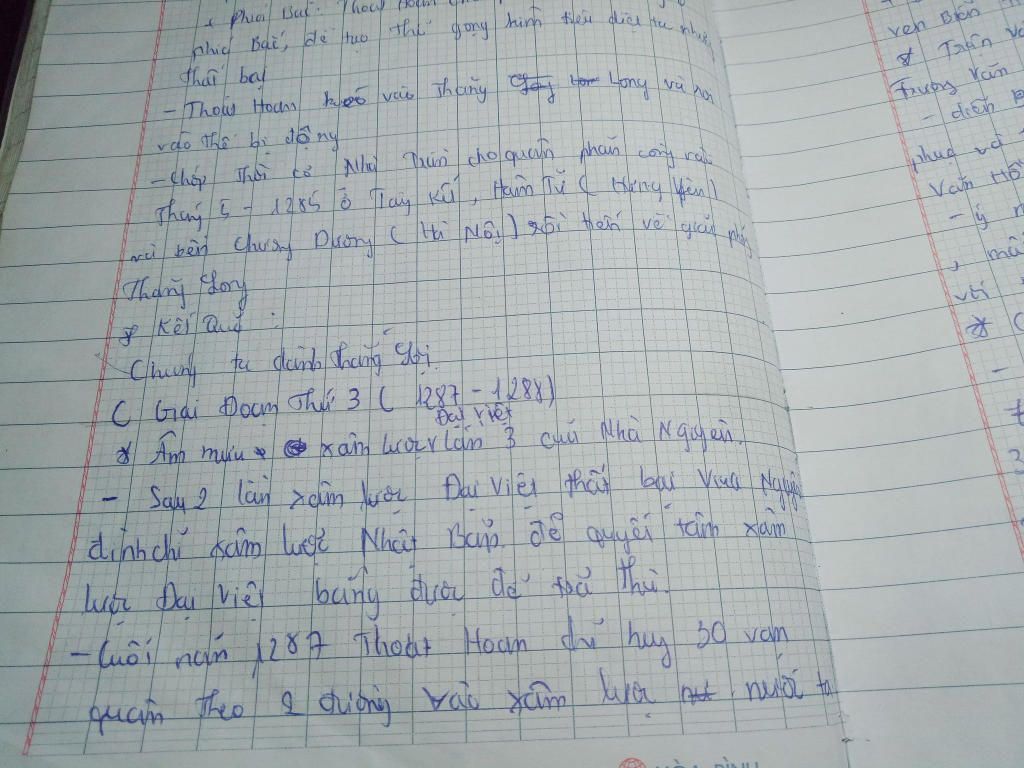 + phía Bắc: Thoát Hoan
phía Bắc, để tạo thế gọng kìm tiêu diệt ta nhưng
thất bại
- Thoát Hoan vào Thăng Long và rơi
vào thế bị động
- Chớp thời cơ Nhà Trần cho quân phản công vào
Tháng 5 - 1285 ở Tây Kết, Hàm Tử ( Hưng Yên )
và bến Chương Dương ( Hà Nội ) rồi tiến về giải phóng
Thăng Long
* Kết quả :
Chúng ta dành thắng lợi.
C Giai Đoạn Thứ 3 ( 1287 - 1288)
* Âm mưu xâm lược Đại Việt lần 3 của Nhà Nguyên.
- Sau 2 lần xâm lược Đại Việt thất bại Vua Nguyên
đình chỉ xâm lược Nhật Bản để quyết tâm xâm
lược Đại Việt bằng được để trả thù.
- Cuối năm 1287 Thoát Hoan chỉ huy 30 vạn
quân theo 2 đường vào xâm lược nước ta
ven Biển
* Trần
Trương Văn
- diễn
phục vụ
Vân Đồn
- ý
vti
* C
-
3
HÒA BÌNH